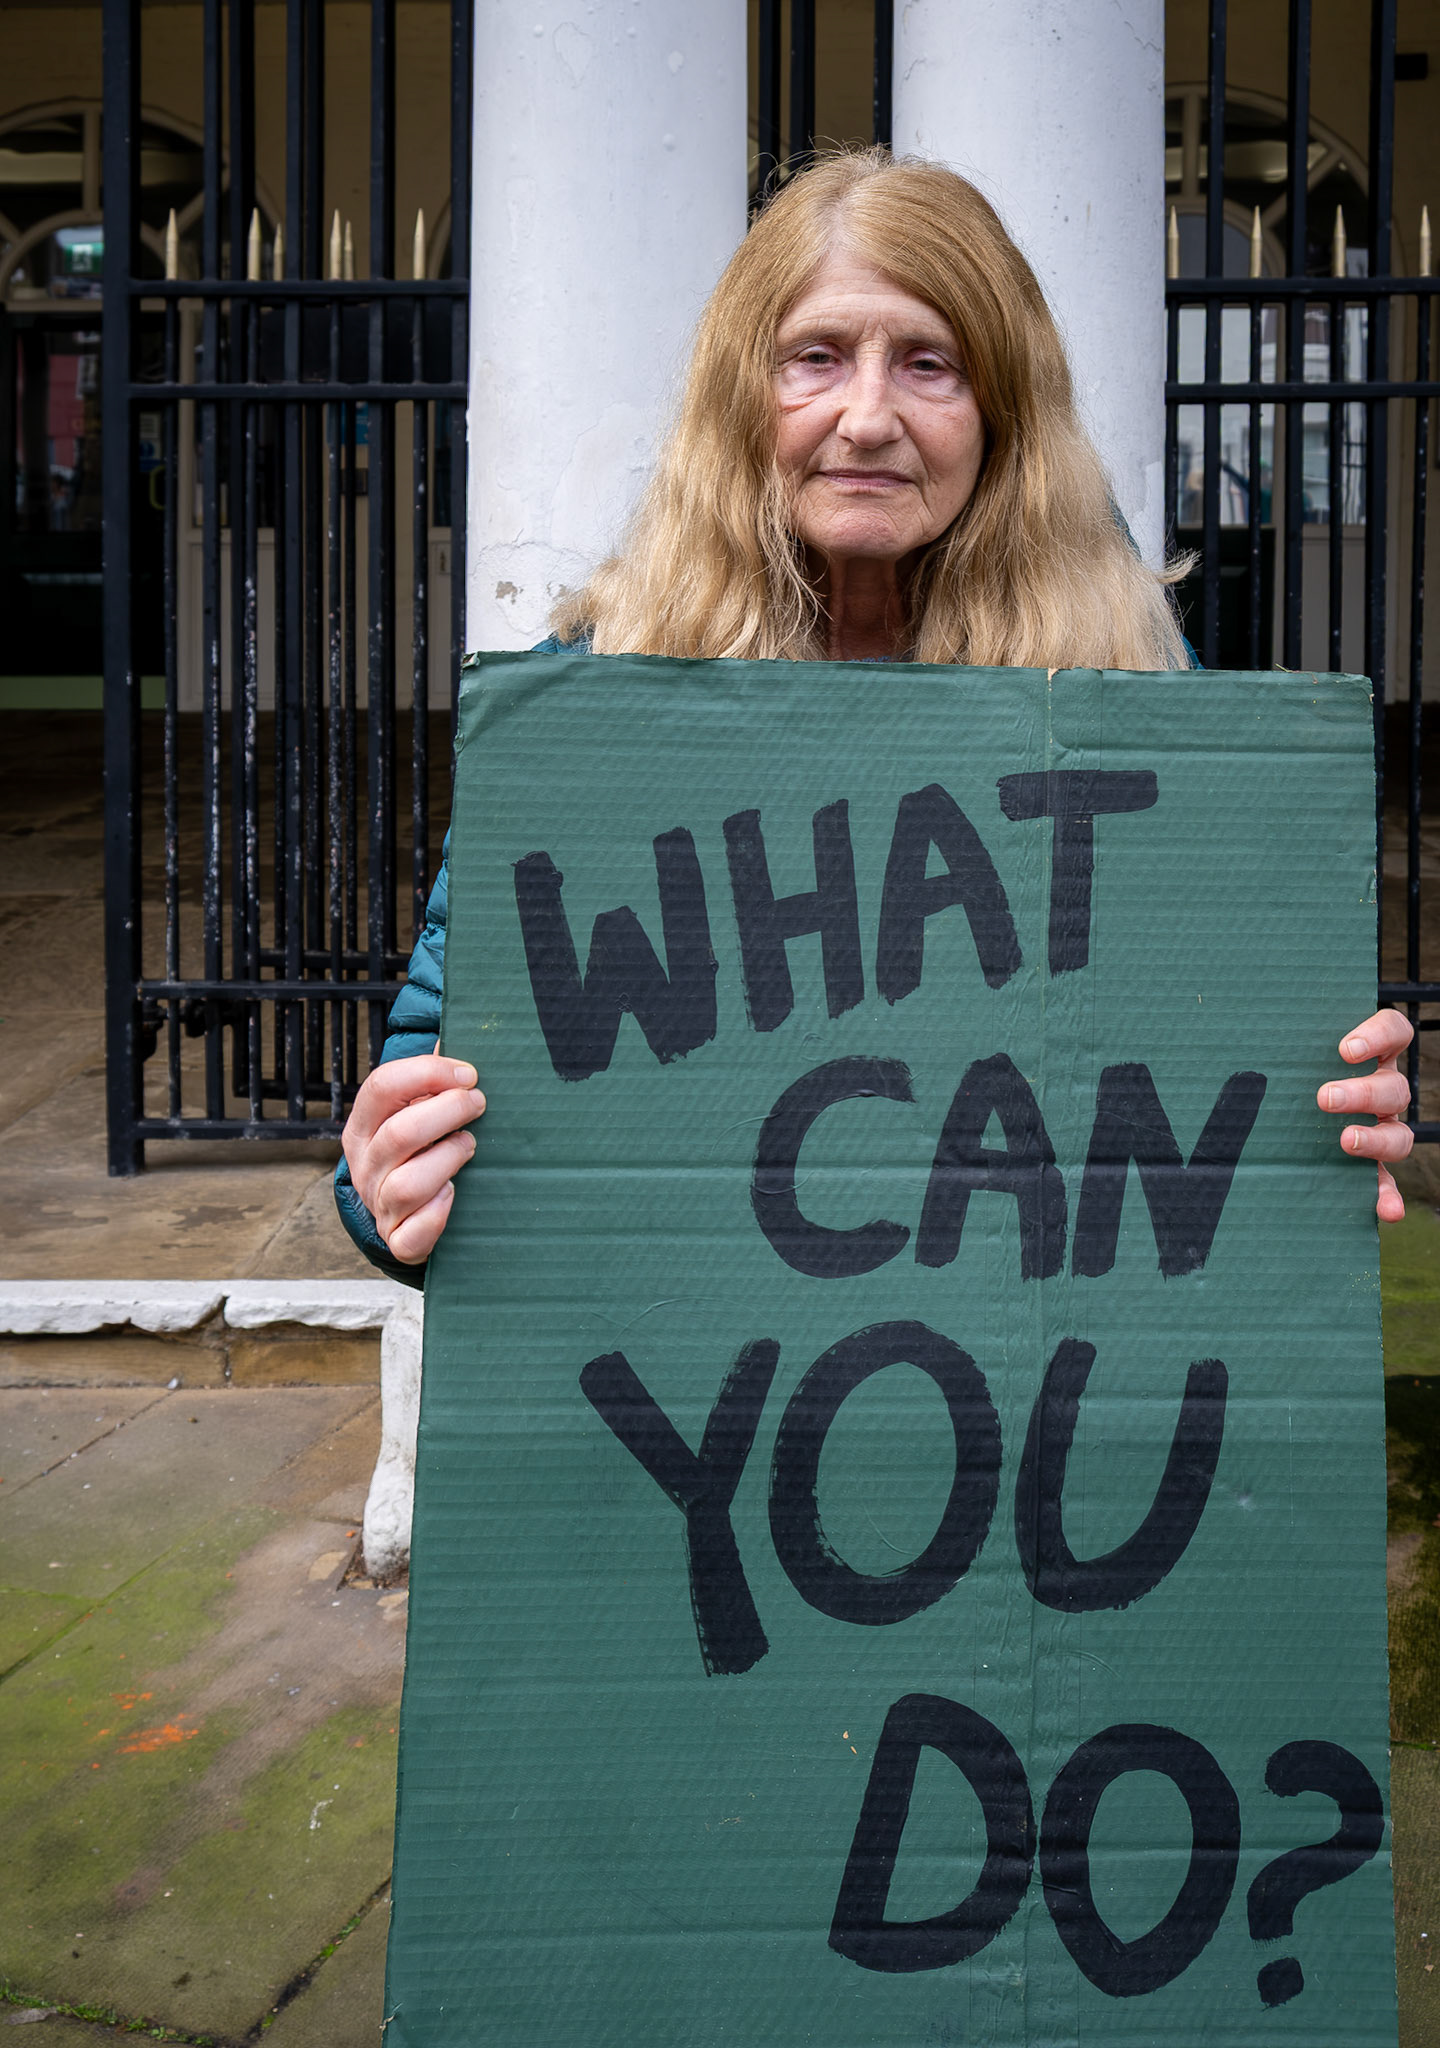 WHAT
CAN
YOU
DO?